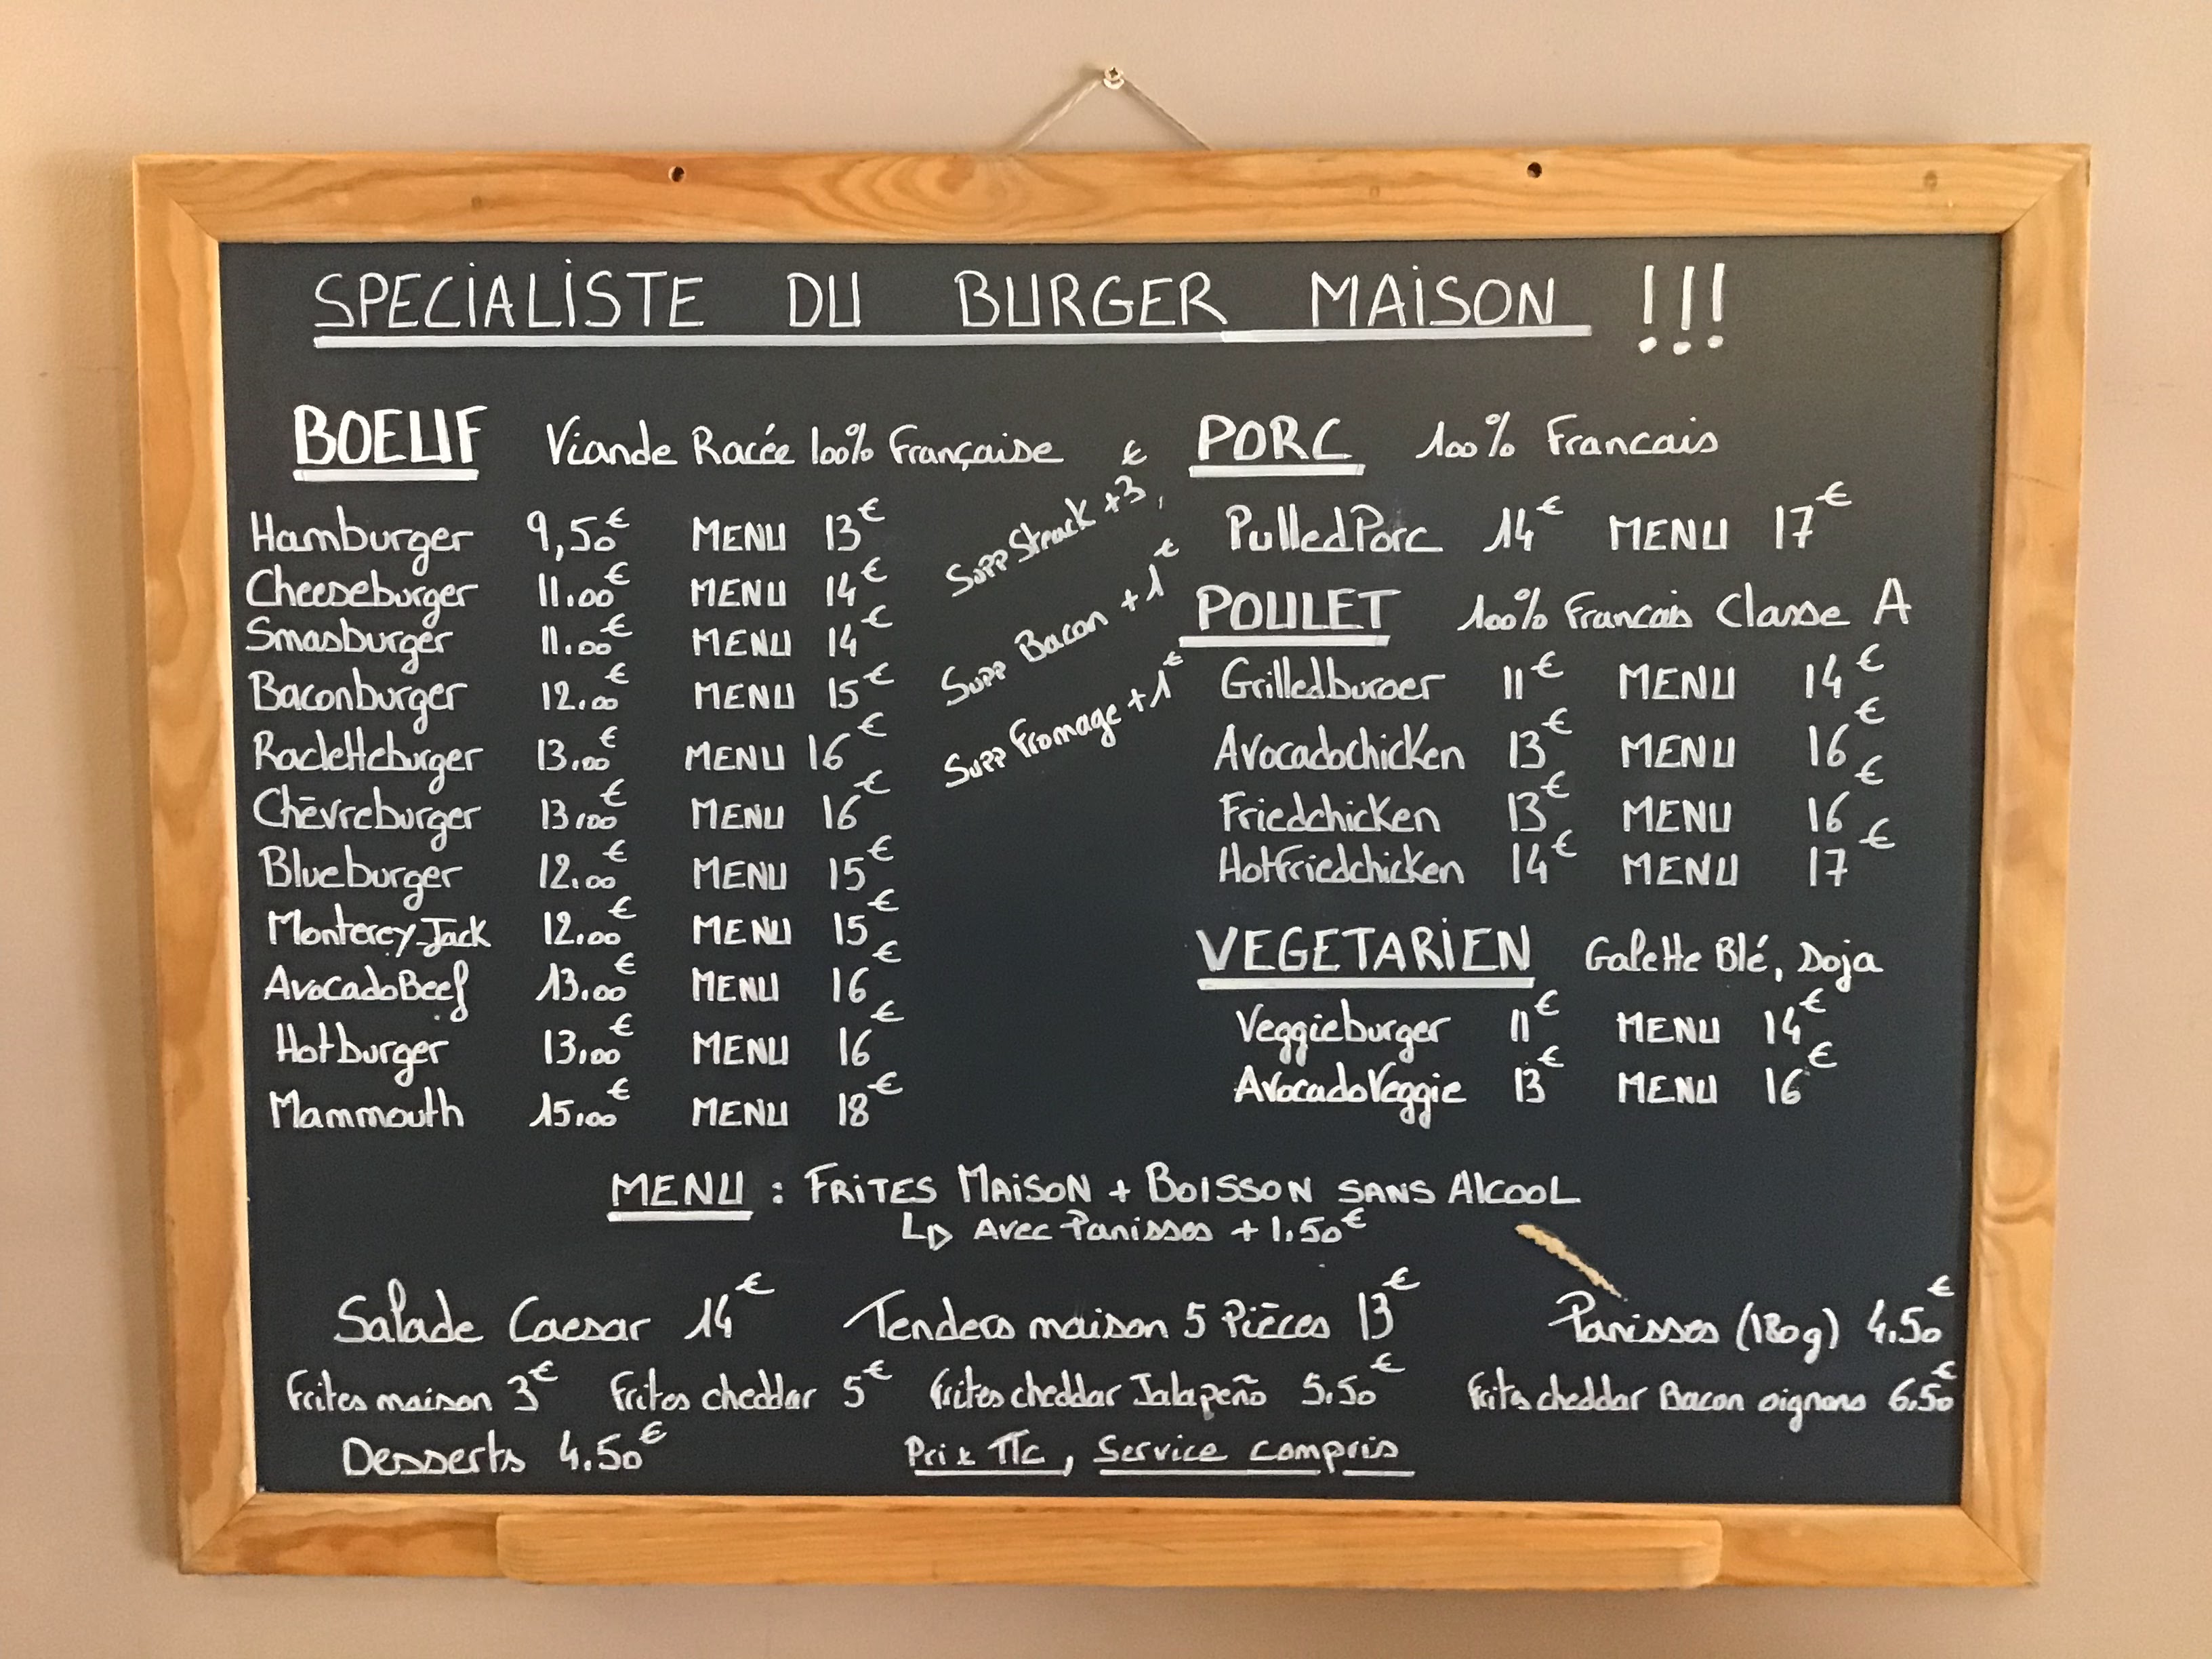 SPECIALISTE DU BURGER MAISON !!!
BOEUF Viande Racée 100% Française
Hamburger 9,50€ MENU 13€
Cheeseburger 11.00€ MENU 14€
Smasburger 11.00€ MENU 14€
Baconburger 12.00€ MENU 15€
Racletteburger 13.00€ MENU 16€
Chèvreburger 13,00€ MENU 16€
Blueburger 12.00€ MENU 15€
Monterey-Jack 12.00€ MENU 15€
AvocadoBeef 13.00€ MENU 16€
Hotburger 13,00€ MENU 16€
Mammouth 15,00€ MENU 18€
Supp Steack +3,€
Supp Bacon +1€
Supp Fromage +1€
PORC 100% Francais
PulledPorc 14€ MENU 17€
POULET 100% Francais Classe A
Grilledburger 11€ MENU 14€
Avocadochicken 13€ MENU 16€
Friedchicken 13€ MENU 16€
Hotfriedchicken 14€ MENU 17€
VEGETARIEN Galette Blé, Soja
Veggieburger 11€ MENU 14€
AvocadoVeggie 13€ MENU 16€
MENU : FRITES MAISON + BOISSON SANS AlCOOL
Avec Panisses + 1.50€
Salade Caesar 14€ Tenders maison 5 Pièces 13€ Panisses (180g) 4.50€
Frites maison 3€ Frites cheddar 5€ Frites cheddar Jalapeño 5.50€ Frites cheddar Bacon oignons 6.50€
Desserts 4.50€ Prix TTC, Service compris